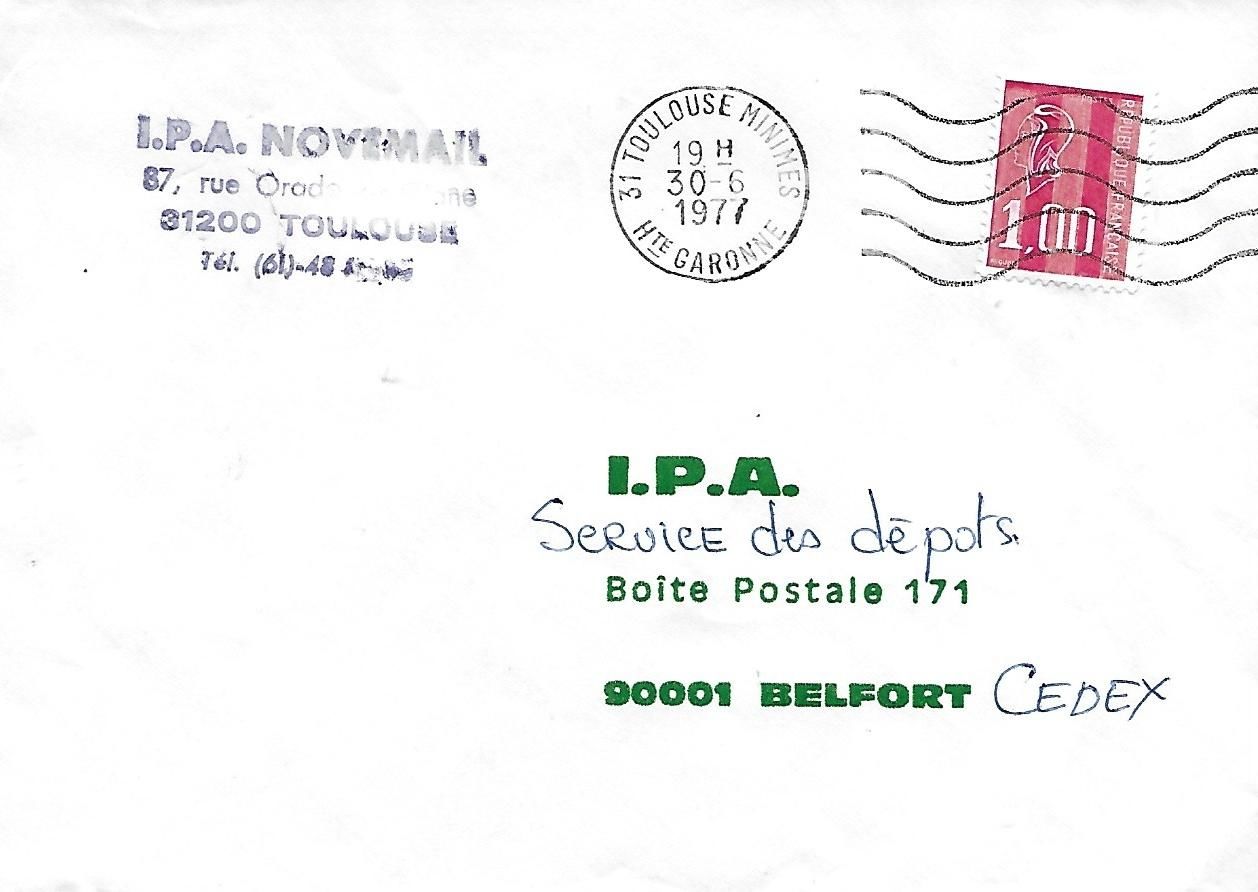 I.P.A. NOVEMAIL
87, rue
31200 TOULOUSE
Tél. (61)-48
31 TOULOUSE MINIMES
19 H
30-6
1977
HTE GARONNE
POSTES
RÉPUBLIQUE FRANÇAISE
1,00
I.P.A.
SERVICE des dépôts.
Boîte Postale 171
90001 BELFORT CEDEX